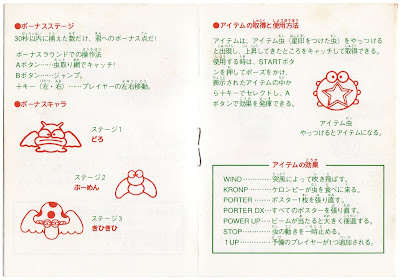 ●ボーナスステージ
30秒以内に捕えた数だけ、君へのボーナス点だ!
ボーナスラウンドでの操作法
Aボタン……虫取り網でキャッチ!
Bボタン……ジャンプ。
十キー(左・右)……プレイヤーの左右移動。
●ボーナスキャラ
ステージ1
どろ
ステージ2
ぶーめん
ステージ3
きひきひ
●アイテムの取得と使用方法
アイテムは、アイテム虫(星印をつけた虫)をやっつける
と出現し、上昇してきたところをキャッチして取得できる。
使用する時は、STARTボタ
ンを押してポーズをかけ、
表示されたアイテムの中か
ら十キーでセレクトし、Aボ
タンで効果を発揮できる。
アイテム虫
やっつけるとアイテムになる。
アイテムの効果
WIND………突風によって吹き飛ばす。
KRONP……ケロンピーが虫を食べに来る。
PORTER……ポスター1枚を張り直す。
PORTER DX…すべてのポスターを張り直す。
POWER UP…ビームが当たると大きく後退する。
STOP………虫の動きを一時止める。
1 UP…………予備のプレイヤーが1つ追加される。